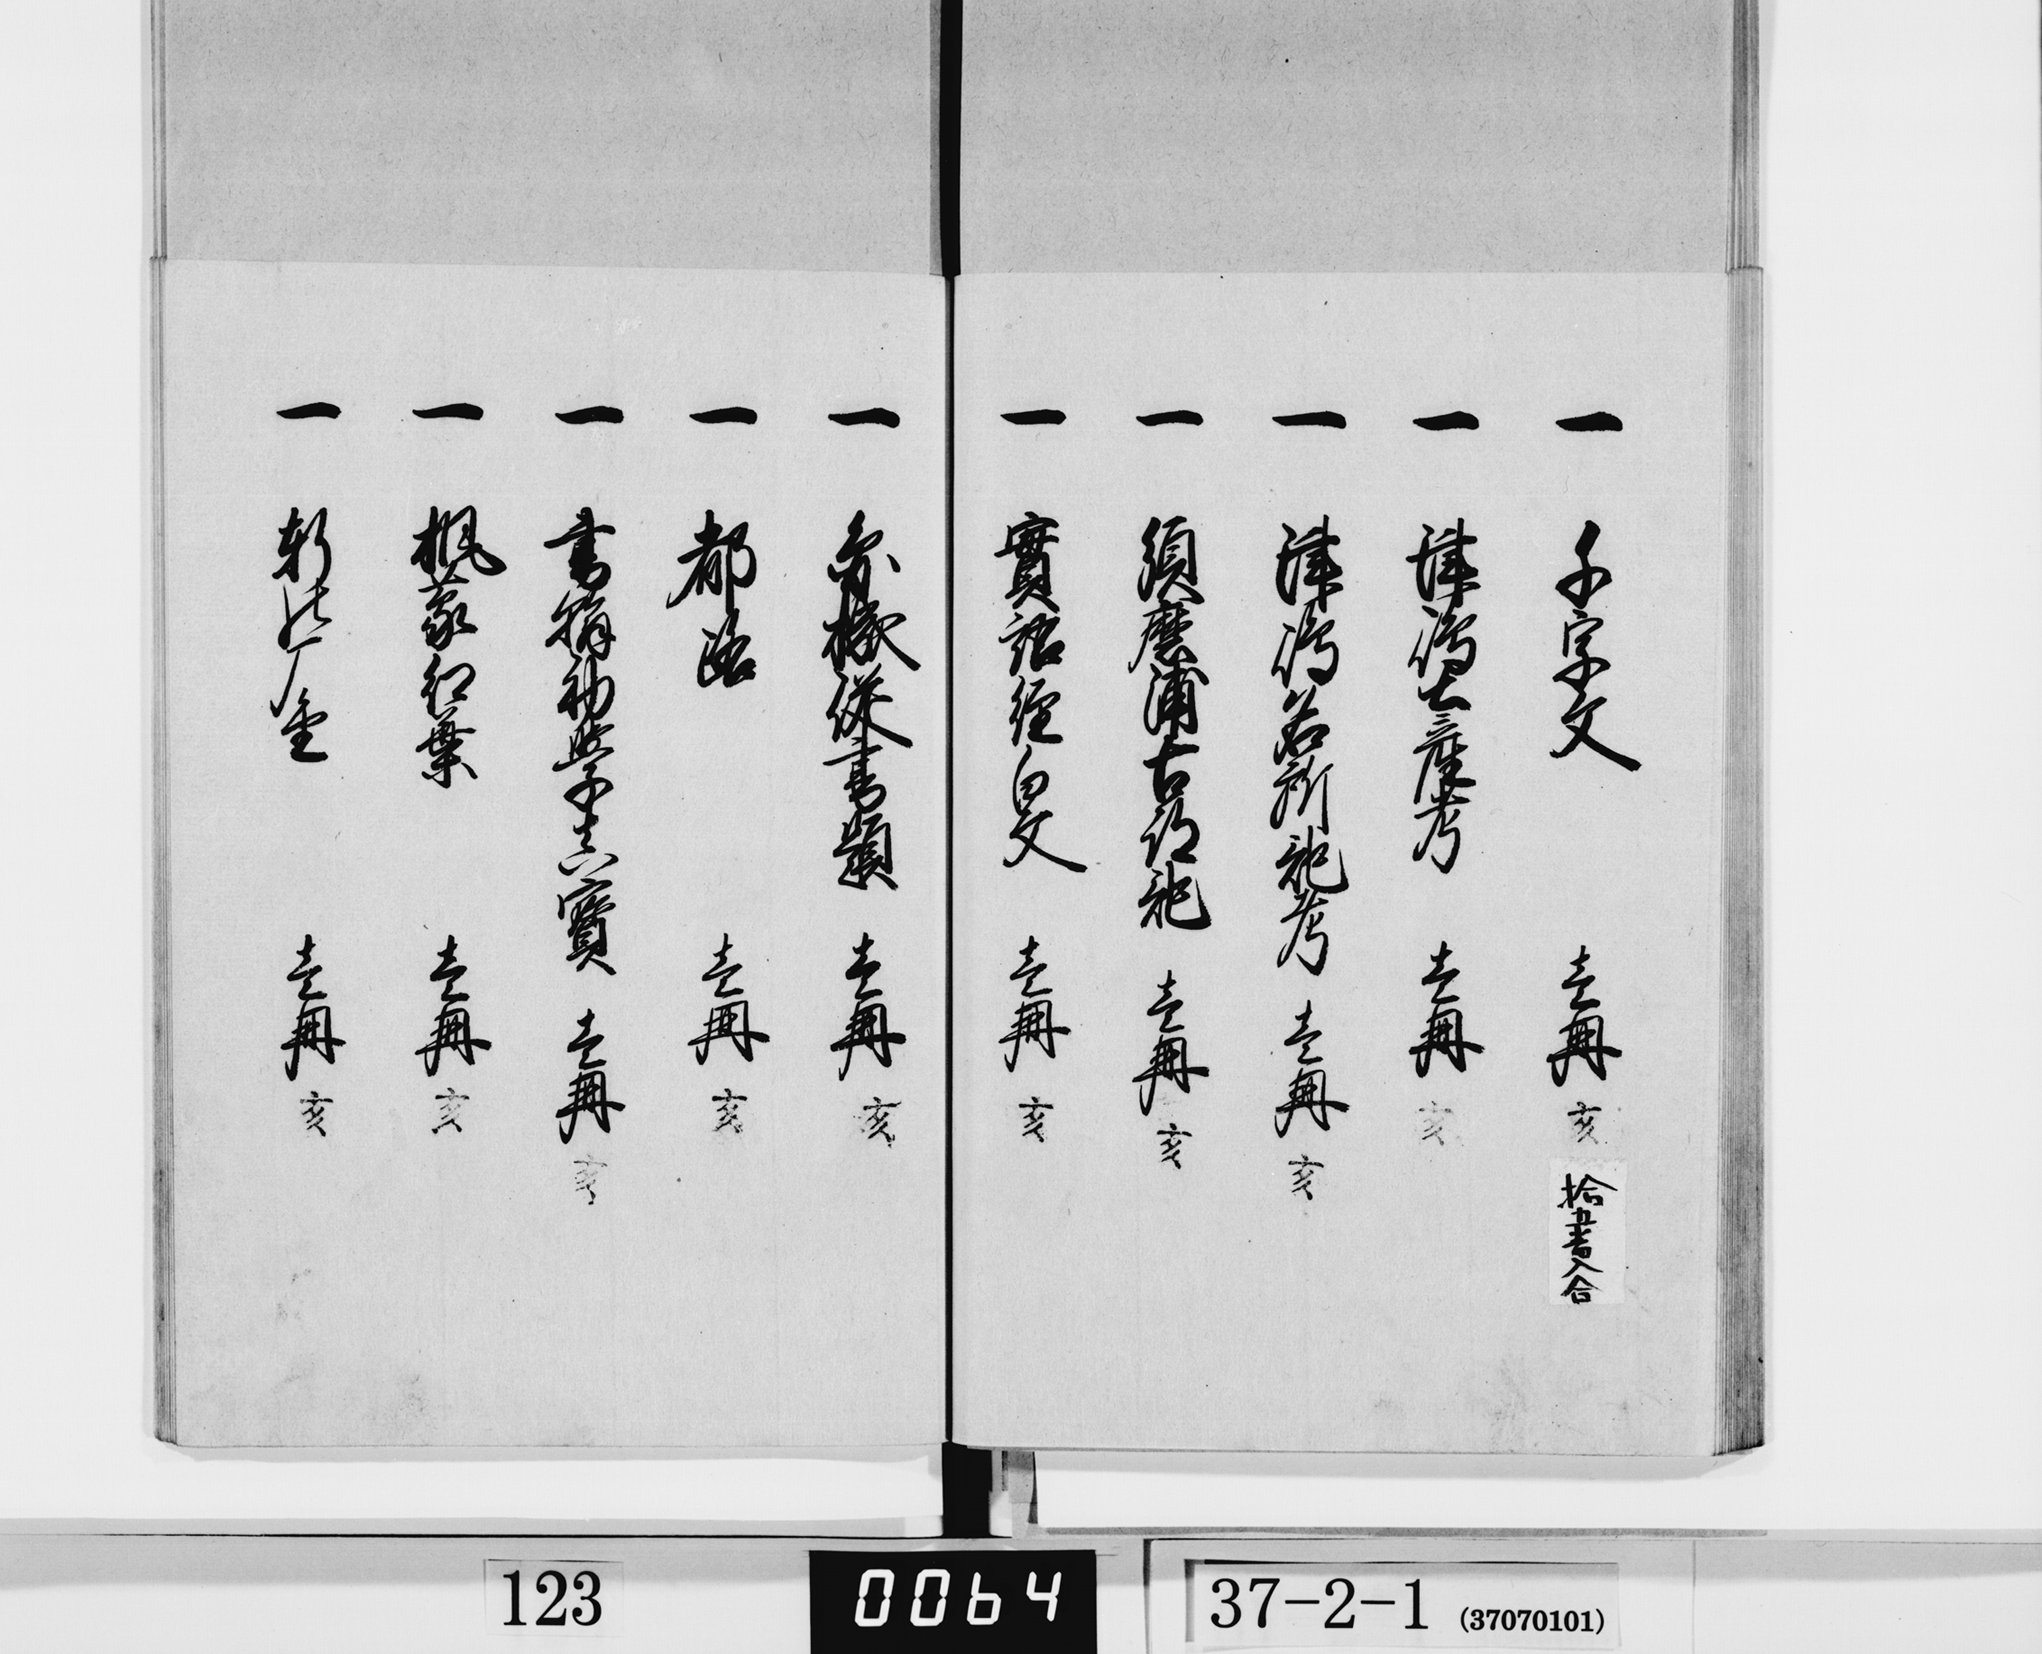 一 千字文 壱冊 亥 拾五書入合
一 津嶋土産考 壱冊 亥
一 津嶋名所記考 壱冊 亥
一 須磨浦古記 壱冊 亥
一 實語経白文 壱冊 亥
一 書類 壱冊 亥
一 都路 壱冊 亥
一 書翰初学寶 壱冊 亥
一 楓紅葉 壱冊 亥
一 金 壱冊 亥
123
0064
37-2-1 (37070101)